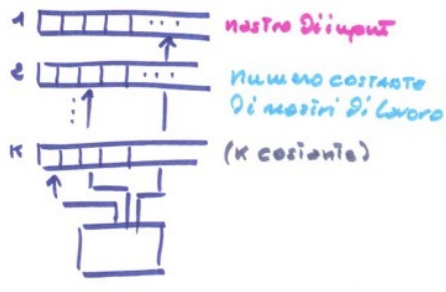 1 ... nastro di input
2 ... numero costante
di nastri di lavoro
K (K costante)